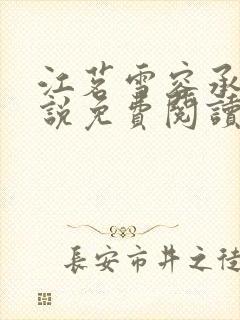 江茗雪容承
說免費閱讀
長安市井之徒